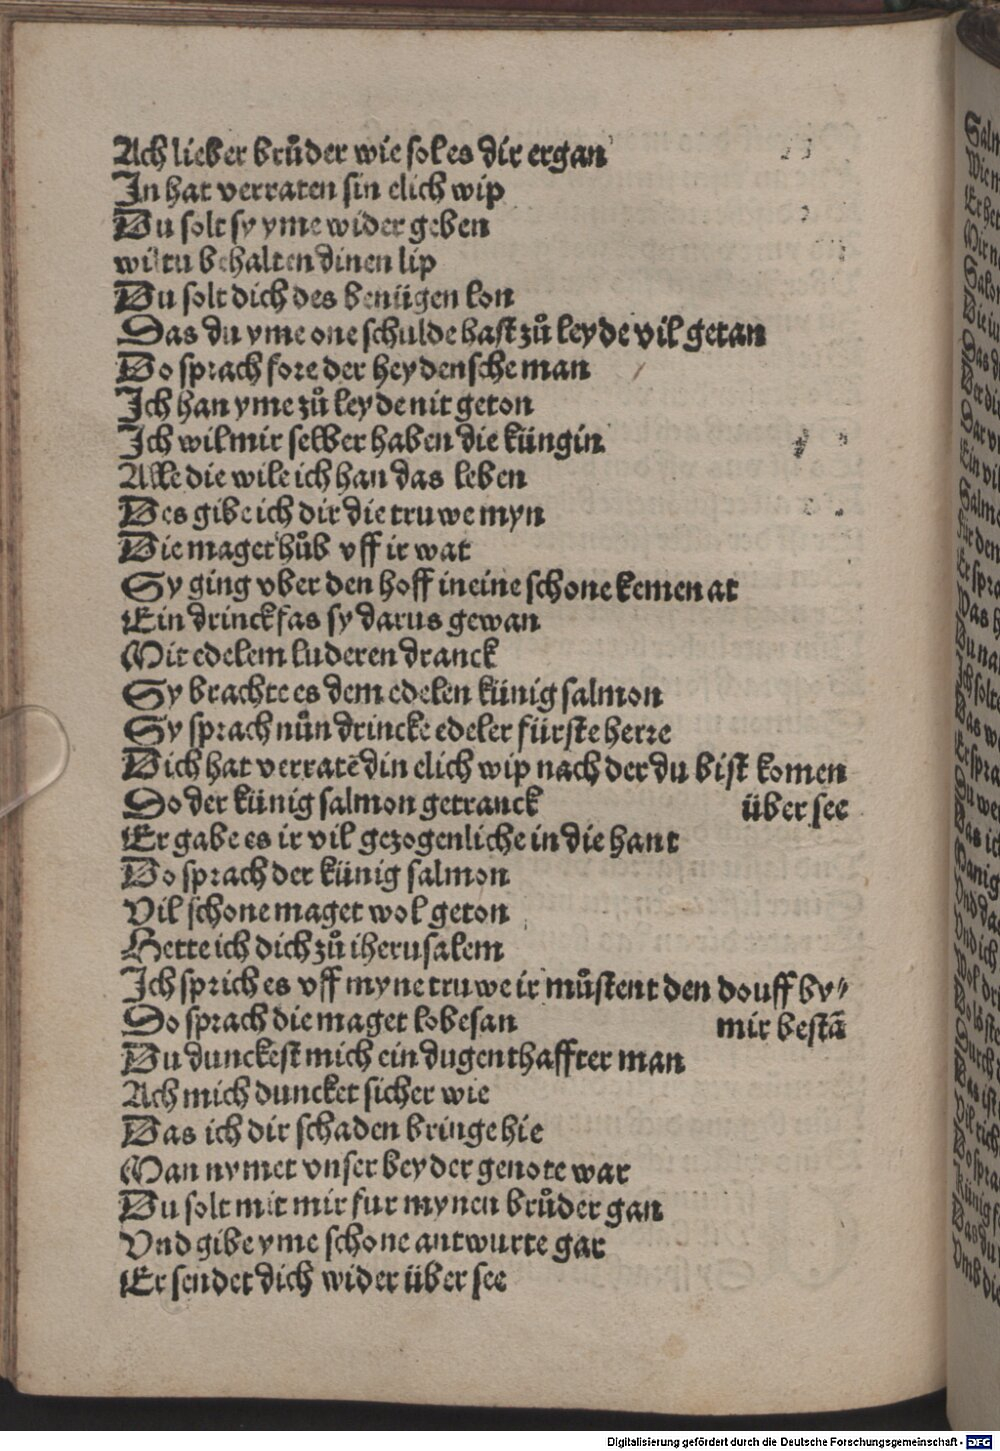 Ach lieber bruͦder wie sol es dir ergan
In hat verraten sin elich wip
Du solt sy yme wider geben
wiltu behalten dinen lip
Du solt dich des benügen lon
Das du yme one schulde hast zuͦ leyde vil getan
Do sprach fore der heydensche man
Ich han yme zuͦ leyde nit geton
Ich wil mir selber haben die küngin
Alle die wile ich han das leben
Des gibe ich dir die truwe myn
Die maget huͦb vff ir wat
Sy ging vber den hoff in eine schone kemenat
Ein drinckfas sy darus gewan
Mit edelem luderen dranck
Sy brachte es dem edelen künig salmon
Sy sprach nuͦn drincke edeler fürste herre
Dich hat verratē din elich wip nach der du bist komen
Do der künig salmon getranck über see
Er gabe es ir vil gezogenliche in die hant
Do sprach der künig salmon
Vil schone maget wol geton
Hette ich dich zuͦ iherusalem
Ich sprich es vff myne truwe ir muͦstent den douff by⸗
Do sprach die maget lobesan mir bestā
Du dunckest mich ein dugenthaffter man
Ach mich duncket sicher wie
Das ich dir schaden bringe hie
Man nymet vnser beyder genote war
Du solt mit mir fur mynen bruͦder gan
Vnd gibe yme schone antwurte gar
Er sendet dich wider über see
Salm
Wie n
Er het
Mir n
Salo
Die i
Das d
Der di
Dar v
Ein vil
Salmo
für den
Er spra
Was h
Du na
Ich solte
Das wa
Er spra
Du wer
Das ich
Manig
Vnd da
Vnd ich
Wol dri
Do loste
Durch
Des ist
Vil rich
Do spra
Künig f
Das du
Vmb die
Digitalisierung gefördert durch die Deutsche Forschungsgemeinschaft - DFG